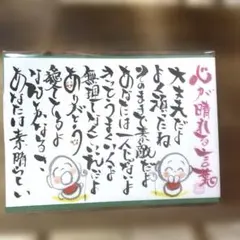 心が晴れる言葉
大丈夫だよ
よく頑ったね
そのままで素敵だよ
あなたは一人じゃないよ
きっとうまくいくよ
無理しなくていいんだよ
ありがとう
愛してるよ
なんとかなるよ
あなたは素晴らしい